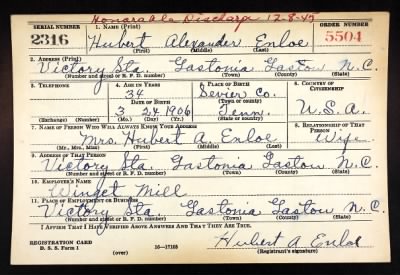 Honorable Discharge 12-8-45
SERIAL NUMBER 1. NAME (Print) ORDER NUMBER
2316 Hubert Alexander Enloe 5504
(First) (Middle) (Last)
2. ADDRESS (Print)
Victory Sta. Gastonia Gaston N.C.
(Number and street or R. F. D. number) (Town) (County) (State)
3. TELEPHONE 4. AGE IN YEARS 5. PLACE OF BIRTH 6. COUNTRY OF CITIZENSHIP
36 Sevier Co.
DATE OF BIRTH (Town or county)
3 24 1906 Tenn. U.S.A.
(Exchange) (Number) (Mo.) (Day) (Yr.) (State or country)
7. NAME OF PERSON WHO WILL ALWAYS KNOW YOUR ADDRESS 8. RELATIONSHIP OF THAT PERSON
Mrs. Hubert A. Enloe Wife
(Mr., Mrs., Miss) (First) (Middle) (Last)
9. ADDRESS OF THAT PERSON
Victory Sta. Gastonia Gaston N.C.
(Number and street or R. F. D. number) (Town) (County) (State)
10. EMPLOYER'S NAME
Winget Mill
11. PLACE OF EMPLOYMENT OR BUSINESS
Victory Sta Gastonia Gaston N.C.
(Number and street or R. F. D. number) (Town) (County) (State)
I AFFIRM THAT I HAVE VERIFIED ABOVE ANSWERS AND THAT THEY ARE TRUE.
Hubert A Enloe
REGISTRATION CARD
D. S. S. Form 1 16-17105 (Registrant's signature)
(over)